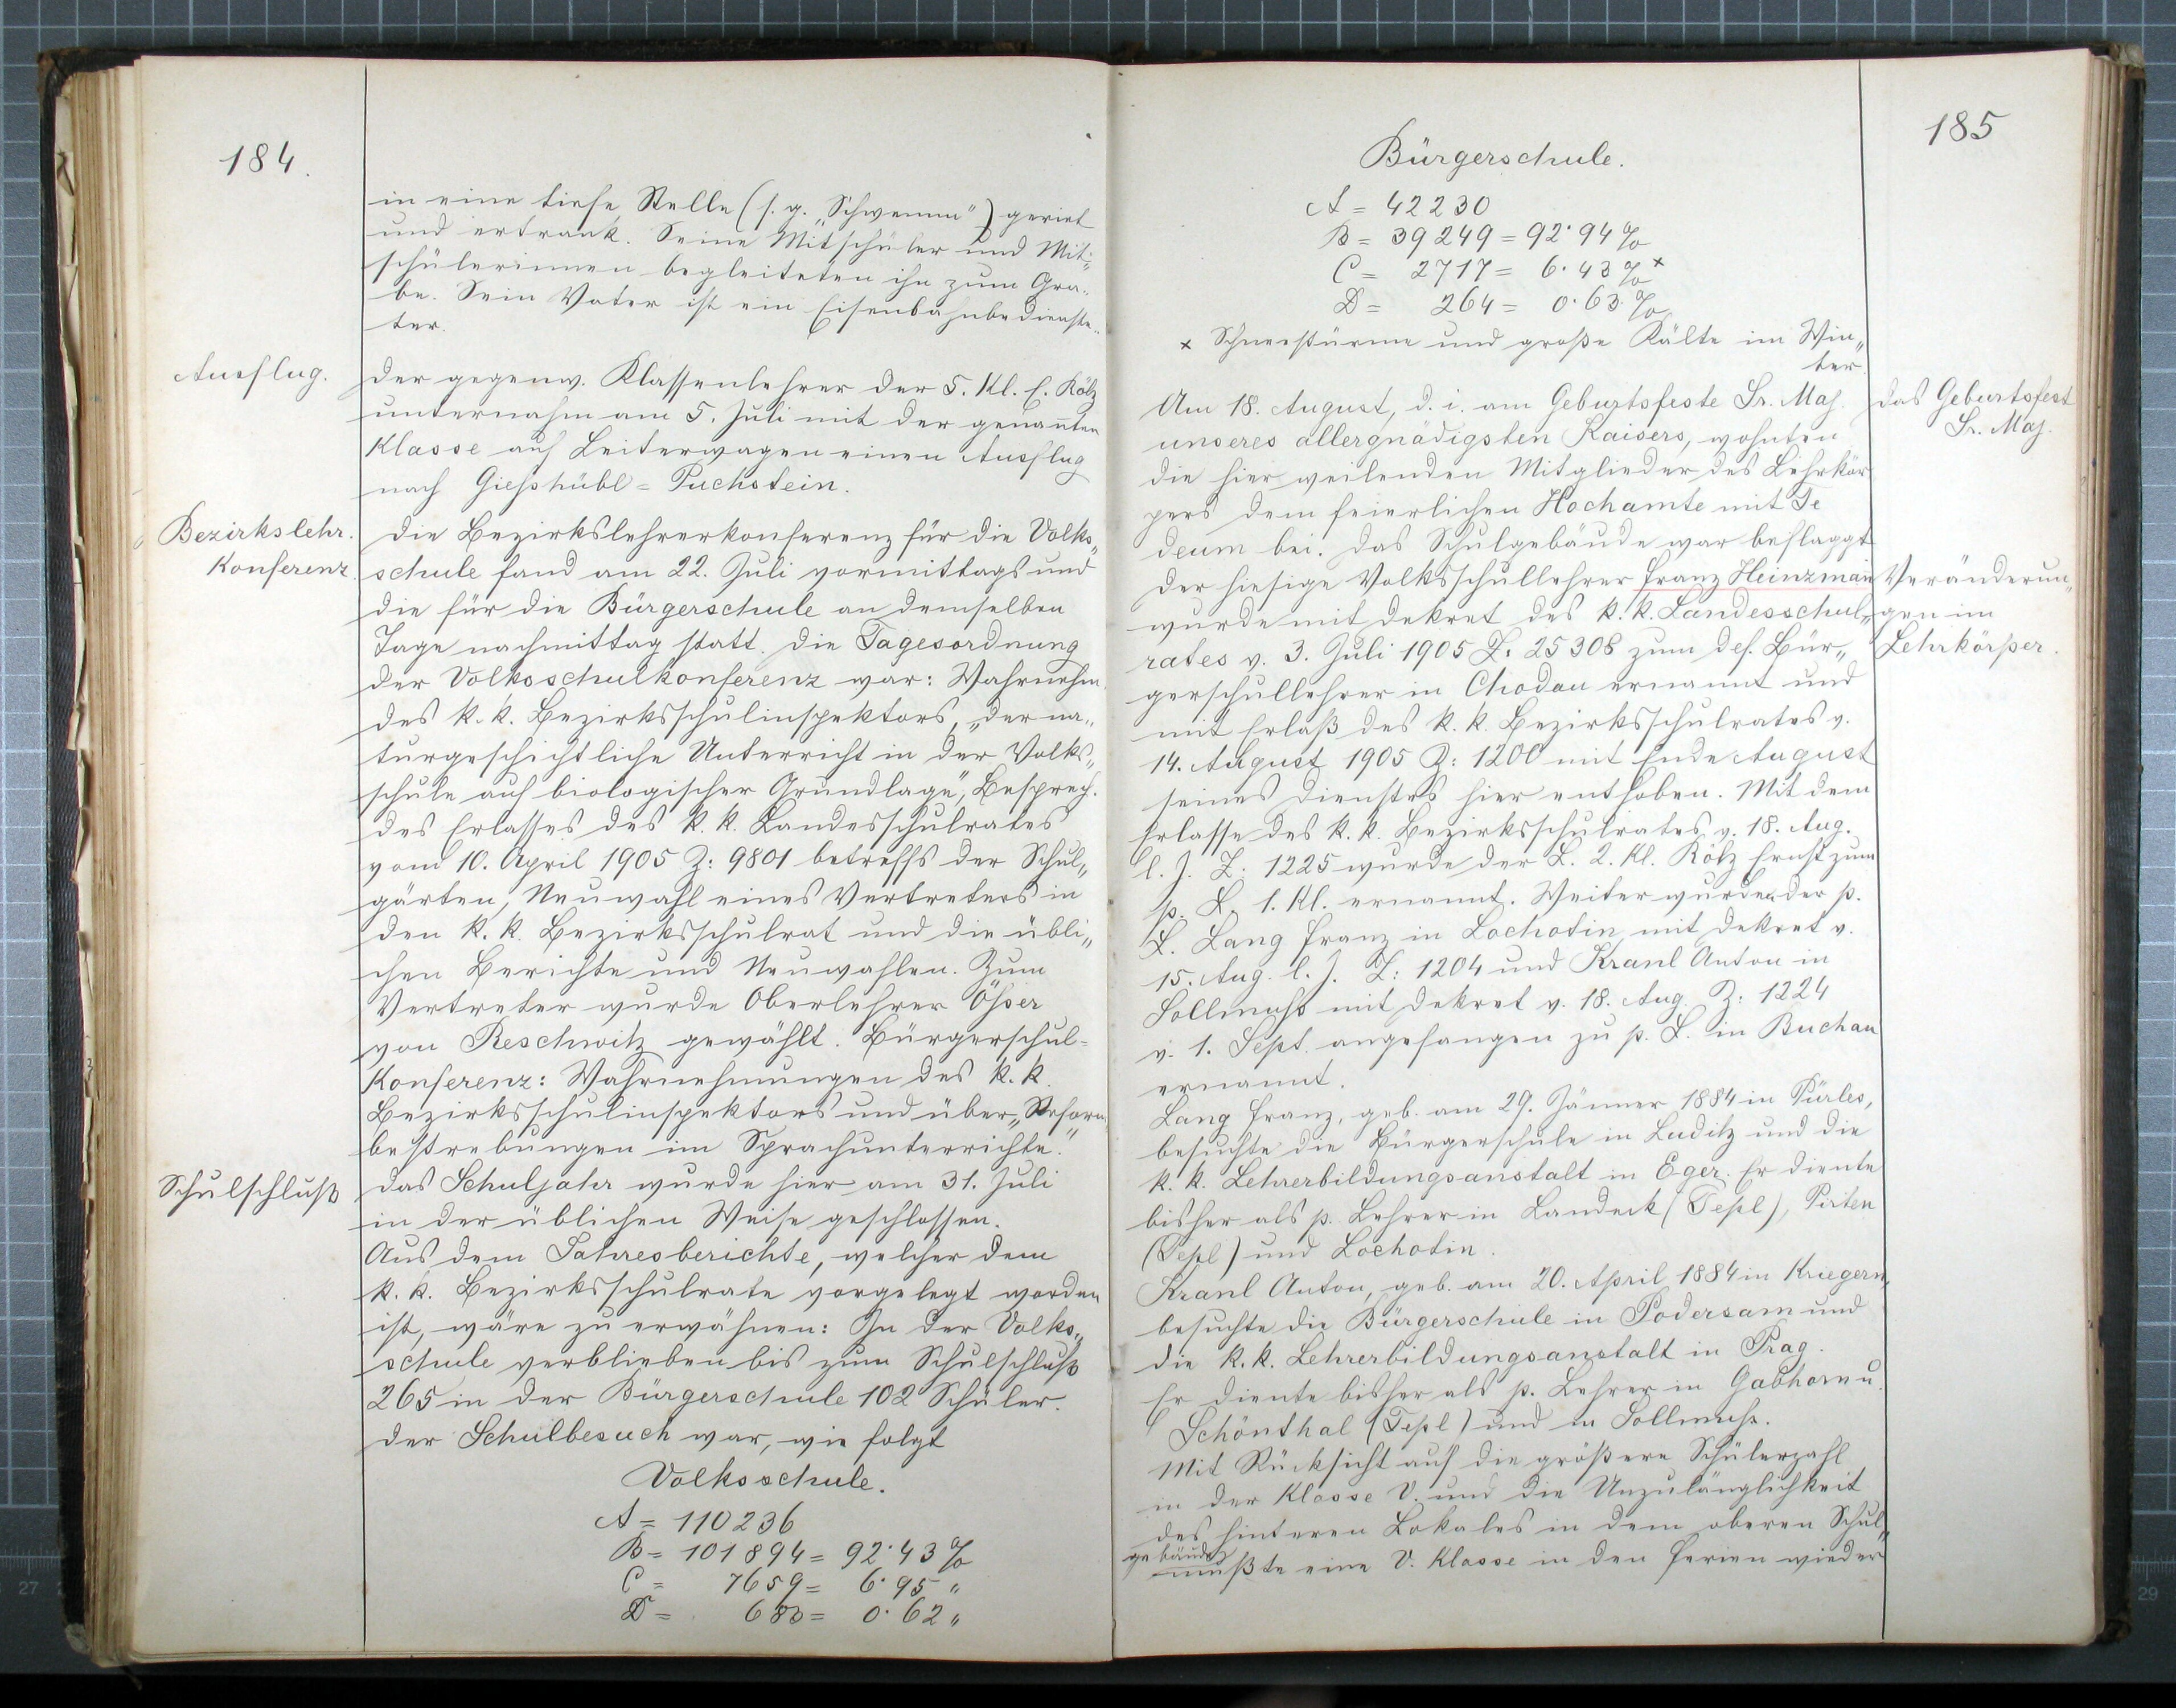 184.
in eine tiefe Stelle (s. g. „Schwemm") geriet
und ertrank. Seine Mitschüler und Mit„
schülerinnen begleiteten ihn zum Gra„
be. Sein Vater ist ein Eisenbahnbedienste„
ter.
Ausflug.
Der gegenw. Klassenlehrer der 5. Kl. E. Kölz
unternahm am 5. Juli mit der genannten
Klasse auf Leiterwagen einen Ausflug
nach Gießhübl=Puchstein.
Bezirkslehr.
Konferenz.
Die Bezirkslehrerkonferenz für die Volks„
schule fand am 22. Juli vormittags und
die für die Bürgerschule an demselben
Tage nachmittag statt. Die Tagesordnung
der Volksschulkonferenz war: Wahrnehm.
des k. k. Bezirksschulinspektors, „der na„
turgeschichtliche Unterricht in der Volks„
schule auf biologischer Grundlage", Besprech.
des Erlasses des k. k. Landesschulrates
vom 10. April 1905 Z: 9801 betreffs der Schul„
gärten, Neuwahl eines Vertreters in
den k. k. Bezirksschulrat und die übli„
chen Berichte und Neuwahlen. Zum
Vertreter wurde Oberlehrer
von Reschwitz gewählt. Bürgerschul-
Konferenz: Wahrnehmungen des k. k.
Bezirksschulinspektors und über „Reform
bestrebungen im Sprachunterrichte."
Schulschluß
Das Schuljahr wurde hier am 31. Juli
in der üblichen Weise geschlossen.
Aus dem Jahresberichte, welcher dem
k. k. Bezirksschulrate vorgelegt worden
ist, wäre zu erwähnen: In der Volks„
schule verblieben bis zum Schulschluß
265 in der Bürgerschule 102 Schüler.
Der Schulbesuch war, wie folgt
Volksschule.
A = 110236
B = 101894 = 92·43 %
C = 7659 = 6·95 "
D = 683 = 0·62 "
185
Bürgerschule.
A = 42230
B = 39249 = 92·94 %
C = 2717 = 6·43 % x
D = 264 = 0·63 %
x Schneestürme und große Kälte im Win„
ter.
Das Geburtsfest
Sr. Maj.
Am 18. August, d. i. am Geburtsfeste Sr. Maj.
unseres allergnädigsten Kaisers, wohnten
die hier weilenden Mitglieder des Lehrkör
pers dem feierlichen Hochamte mit Te
deum bei. Das Schulgebäude war beflaggt
Veränderun„
gen im
Lehrkörper.
Der hiesige Volksschullehrer Franz Heinzmain
wurde mit Dekret des k. k. Landesschul„
rates v. 3. Juli 1905 Z: 25308 zum def. Bür„
gerschullehrer in Chodau ernannt und
mit Erlaß des k. k. Bezirksschulrates v.
14. August 1905 Z: 1200 mit Ende August
seines Dienstes hier enthoben. Mit dem
Erlasse des k. k. Bezirksschulrates v. 18. Aug.
l. J. Z: 1225 wurde der L. 2. Kl. Kölz Ernst zum
p. L. 1. Kl. ernannt. Weiter wurden der p.
L. Lang Franz in Lochotin mit Dekret v.
15. Aug. l. J. Z: 1204 und Kranl Anton in
Sollmuß mit Dekret v. 18. Aug. Z: 1224
v. 1. Sept. angefangen zu p. L. in Buchau
ernannt.
Lang Franz, geb. am 29. Jänner 1884 in Pürles,
besuchte die Bürgerschule in Luditz und die
k. k. Lehrerbildungsanstalt in Eger. Er diente
bisher als p. Lehrer in Landek (Tepl), Pirten
(Tepl) und Lochotin.
Kranl Anton, geb. am 20. April 1884 in Kriegern,
besuchte die Bürgerschule in Podersam und
die k. k. Lehrerbildungsanstalt in Prag.
Er diente bisher als p. Lehrer in Gabhorn u.
Schönthal (Tepl) und in Sollmuß.
Mit Rücksicht auf die größere Schülerzahl
in der Klasse V. und die Unzulänglichkeit
des hinteren Lokales in dem oberen Schul„
gebäude mußte eine V. Klasse in den Ferien wieder